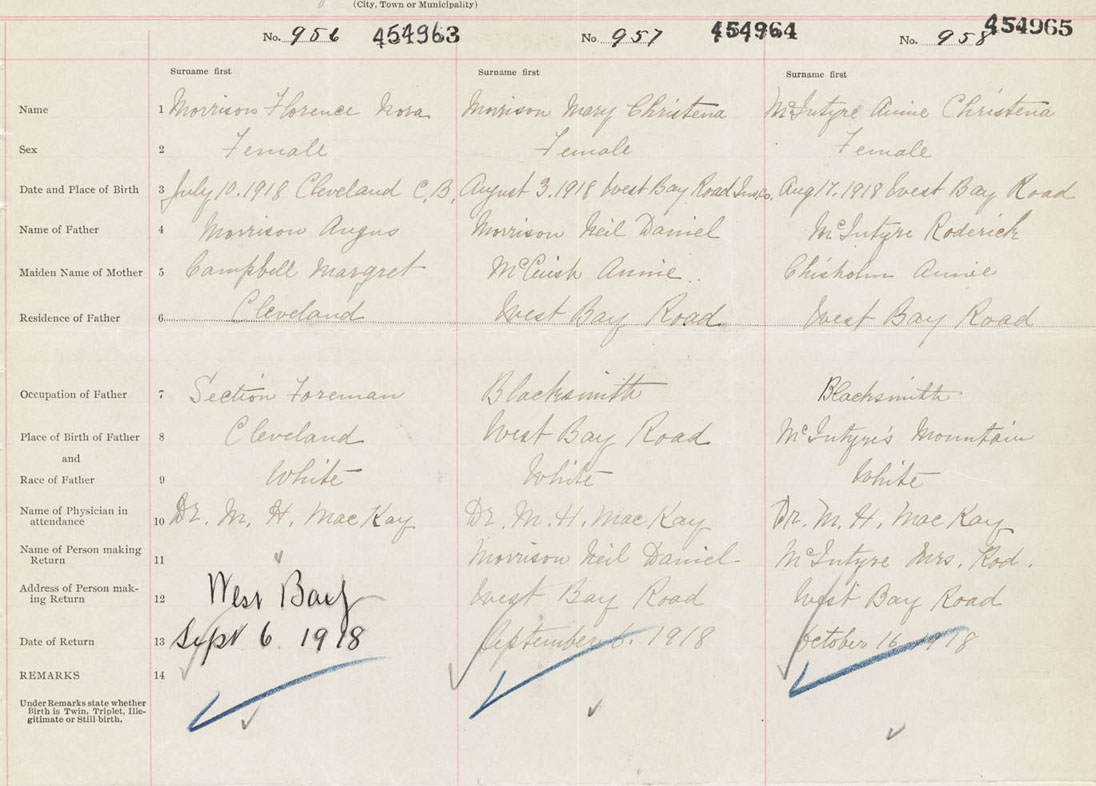 (City, Town or Municipality)
No. 956 454963 No. 957 454964 No. 958 454965
Surname first Surname first Surname first
Name 1 Morrison Florence Nora Morrison Mary Christena McIntyre Annie Christena
Sex 2 Female Female Female
Date and Place of Birth 3 July 10.1918 Cleveland C.B. August 3.1918 West Bay Road Inv.Co. Aug 17.1918 West Bay Road
Name of Father 4 Morrison Angus Morrison Neil Daniel McIntyre Roderick
Maiden Name of Mother 5 Campbell Margret McCuish Annie Chisholm Annie
Residence of Father 6 Cleveland West Bay Road West Bay Road
Occupation of Father 7 Section Foreman Blacksmith Blacksmith
Place of Birth of Father 8 Cleveland West Bay Road McIntyre's Mountain
and
Race of Father 9 White White White
Name of Physician in
attendance 10 Dr. M. H. MacKay Dr. M. H. MacKay Dr. M. H. MacKay
Name of Person making
Return 11 Morrison Neil Daniel McIntyre Mrs. Rod.
Address of Person mak-
ing Return 12 West Bay West Bay Road West Bay Road
Date of Return 13 Sept 6. 1918 September 6. 1918 October 16 1918
REMARKS 14
Under Remarks state whether
Birth is Twin, Triplet, Ille-
gitimate or Still birth.